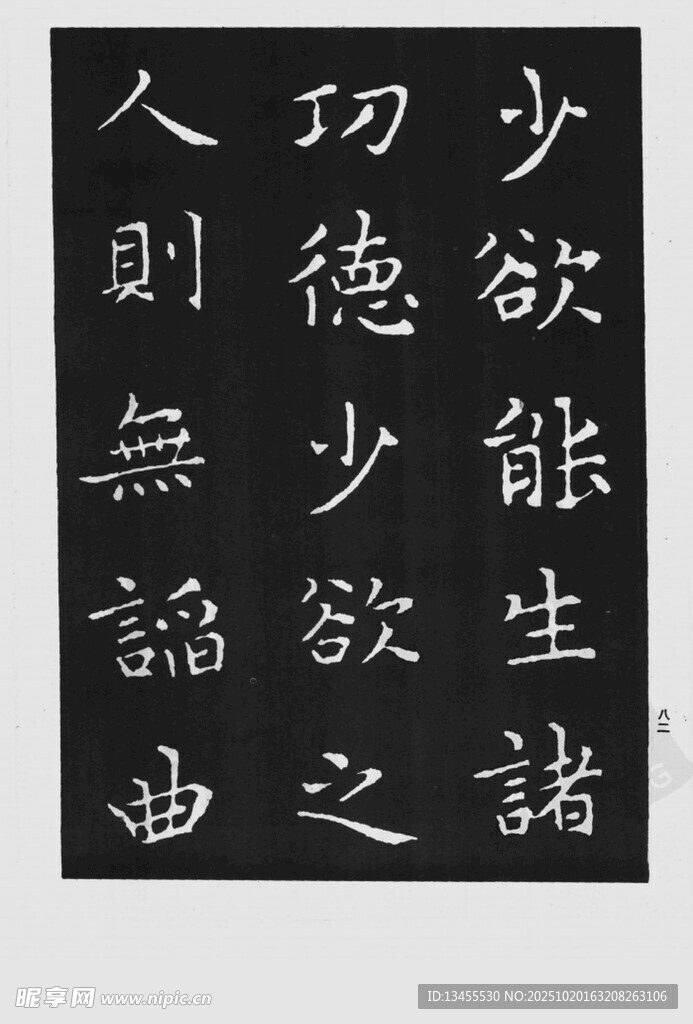 少欲能生諸
功德少欲之
人則無謟曲
八二
昵享网 www.nipic.cn
ID:13455530 NO:20251020163208263106